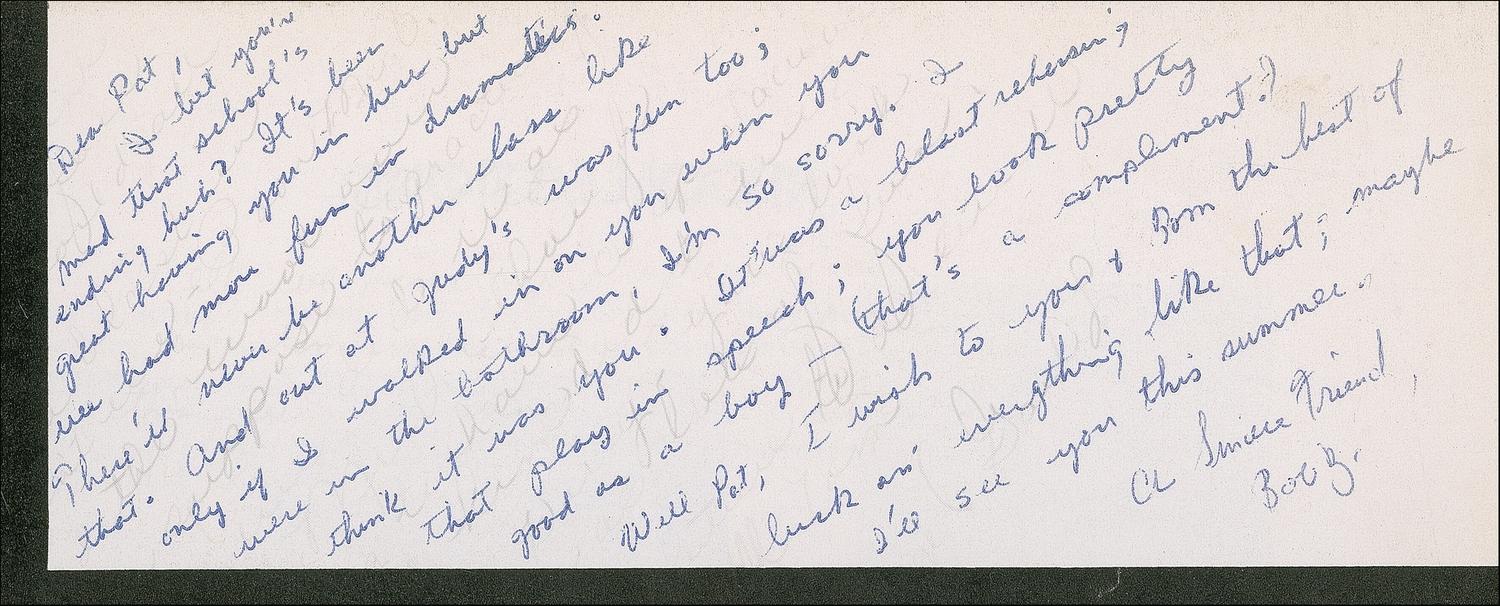 Dear Pat,
I bet you're
mad that school's
ending huh? It's been
great having you in here but
we had more fun in dramatics.
There'll never be another class like
that. And out at Judy's was fun too;
only if I walked in on you when you
were in the bathroom, I'm so sorry. I
think it was you. It was a blast rehersin';
that play in speech; you look pretty
good as a boy — (that's a compliment!)
Well Pat, I wish to you & Tom the best of
luck an' everything like that; maybe
I'll see you this summer.
A Sincere Friend,
Bob Z.